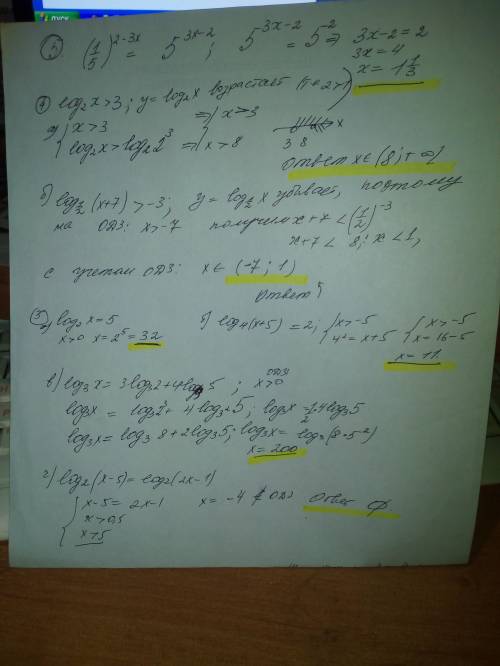 ③ (1/5)^(2-3x) = 5^(3x-2) ; 5^(3x-2) = 5^(-2) ⇒ 3x-2 = 2
3x = 4
x = 1 1/3
④ log₂x > 3; y = log₂x возрастает (т.к 2>1)
а) { x > 3 ⇒ { x > 3
log₂x > log₂2³ ⇒ { x > 8
3 8 x
Ответ x ∈ (8; + ∞)
б) log_1/2 (x+7) > -3; y = log_1/2 x убывает, поэтому
на ОДЗ: x > -7 получим x + 7 < (1/2)^-3
x+7 < 8; x < 1,
с учетом ОДЗ: x ∈ (-7; 1)
Ответ
⑤ а) log₂x = 5
x>0 x = 2⁵ = 32
б) log₄(x+5) = 2; { x > -5 { x > -5
4² = x+5 { x = 16-5
x = 11.
в) log₃x = 3log₃2 + 4 log 5 ; ОДЗ x > 0
log₃x = log₃2³ + 4 log₃ 5, log₃x 1/2 4 log₃5
log₃x = log₃ 8 + 2log₃5; log₃x = log₃(8·5²)
x = 200
г) log₂(x-5) = log₂(2x-1)
{ x-5 = 2x-1 x = -4 ∉ ОДЗ Ответ ∅.
x > 0,5
x > 5